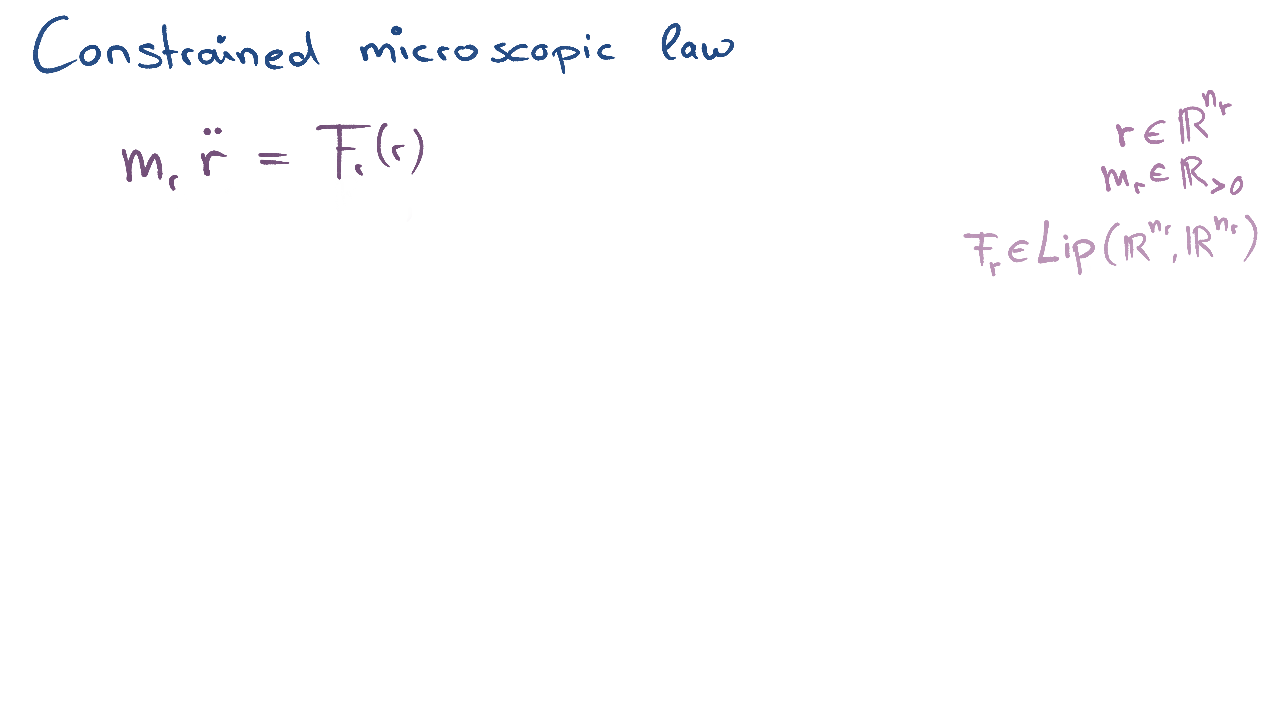 Constrained microscopic law
mᵣ r̈ = Fᵣ(r)
r ∈ ℝⁿʳ
mᵣ ∈ ℝ>0
Fᵣ ∈ Lip(ℝⁿʳ, ℝⁿʳ)